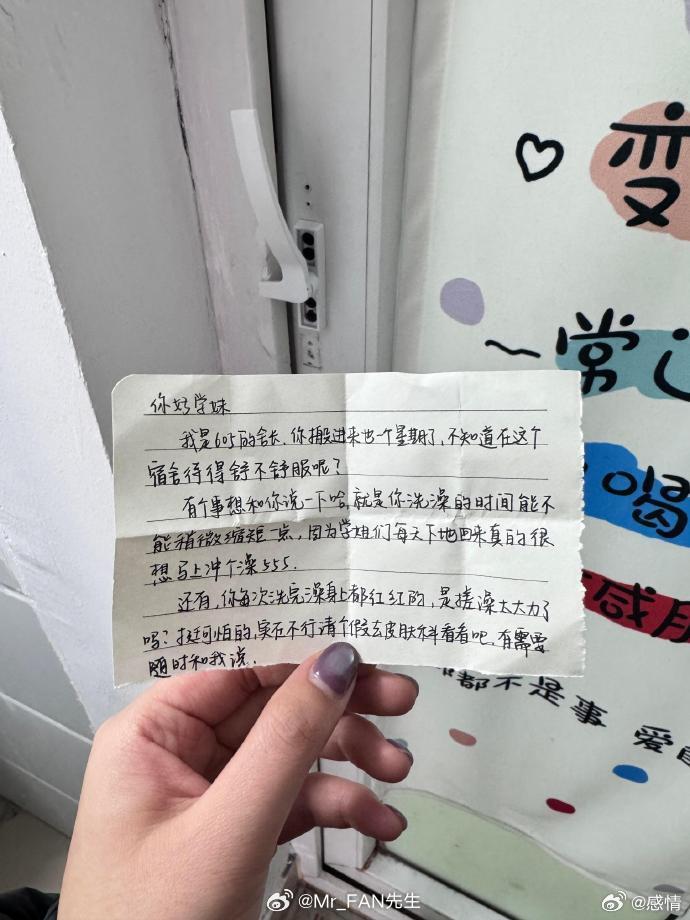 变
常
喝
咸肤
都不是事 爱自
你好学妹
我是605的舍长,你搬进来也一个星期了,不知道在这个
宿舍待得舒不舒服呢?
有个事想和你说一下哈,就是你洗澡的时间能不
能稍微缩短一点,因为学姐们每天下地回来真的很
想马上冲个澡555.
还有,你每次洗完澡身上都红红的,是搓澡太大力了
吗?挺可怕的,实在不行请个假去皮肤科看看吧,有需要
随时和我说.
@Mr_FAN先生
@感情